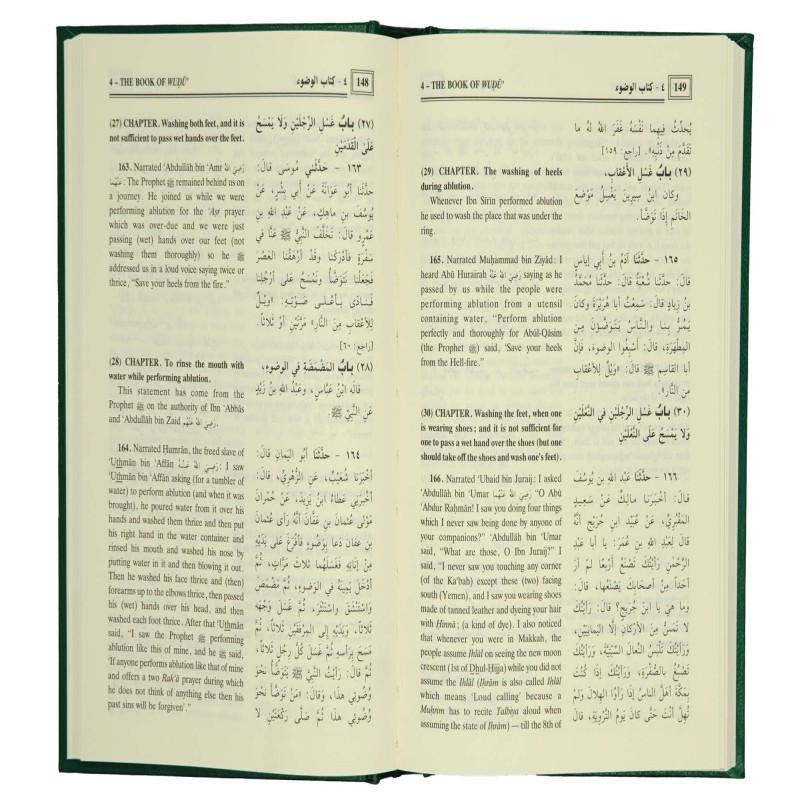 4 – THE BOOK OF WUḌŪ’
٤ - كتاب الوضوء
148
(27) CHAPTER. Washing both feet, and it is
not sufficient to pass wet hands over the feet.
163. Narrated ‘Abdullāh bin ‘Amr رَضِيَ اللهُ
عَنْهُمَا: The Prophet ﷺ remained behind us on
a journey. He joined us while we were
performing ablution for the ‘Aṣr prayer
which was over-due and we were just
passing (wet) hands over our feet (not
washing them thoroughly) so he ﷺ
addressed us in a loud voice saying twice or
thrice, “Save your heels from the fire.”
(28) CHAPTER. To rinse the mouth with
water while performing ablution.
This statement has come from the
Prophet ﷺ on the authority of Ibn ‘Abbās
and ‘Abdullāh bin Zaid رَضِيَ اللهُ عَنْهُمْ.
164. Narrated Ḥumrān, the freed slave of
‘Uthmān bin ‘Affān رَضِيَ اللهُ عَنْهُ: I saw
‘Uthmān bin ‘Affān asking (for a tumbler of
water) to perform ablution (and when it was
brought), he poured water from it over his
hands and washed them thrice and then put
his right hand in the water container and
rinsed his mouth and washed his nose by
putting water in it and then blowing it out.
Then he washed his face thrice and (then)
forearms up to the elbows thrice, then passed
his (wet) hands over his head, and then
washed each foot thrice. After that ‘Uthmān
said, “I saw the Prophet ﷺ performing
ablution like this of mine, and he ﷺ said,
‘If anyone performs ablution like that of mine
and offers a two Rak‘ā prayer during which
he does not think of anything else then his
past sins will be forgiven’.”
(٢٧) بابُ غَسْلِ الرِّجْلَيْنِ وَلَا يَمْسَحُ
عَلَى الْقَدَمَيْنِ
١٦٣ - حَدَّثَنِي مُوسَى قَالَ:
حَدَّثَنَا أَبُو عَوَانَةَ عَنْ أَبِي بِشْرٍ، عَنْ
يُوسُفَ بنِ ماهِكٍ، عَنْ عَبْدِ اللهِ بنِ
عَمْرٍو قالَ: تَخَلَّفَ النَّبِيُّ ﷺ عَنَّا في
سَفْرَةٍ فَأَدْرَكَنا وَقَدْ أَرْهَقْنَا الْعَصْرَ
فَجَعَلْنا نَتَوَضَّأُ وَنَمْسَحُ عَلى أَرْجُلِنا
فَنَادَى بِأَعْلَى صَوْتِهِ: «وَيْلٌ
لِلأَعْقابِ مِنَ النَّارِ» مَرَّتَيْنِ أَوْ ثَلاثًا.
[راجع: ٦٠]
(٢٨) بابُ الْمَضْمَضَةِ في الوضوءِ،
قالَهُ ابْنُ عَبَّاسٍ، وَعَبْدُ اللهِ بْنُ زَيْدٍ
عَنِ النَّبِيِّ ﷺ.
١٦٤ - حَدَّثَنَا أَبُو الْيَمَانِ قَالَ:
أَخْبَرَنا شُعَيْبٌ، عَنِ الزُّهْرِيِّ، قَالَ:
أَخْبَرَنِي عَطَاءُ ابْنُ يَزِيدَ، عَنْ حُمْرَانَ
مَوْلَى عُثْمانَ بنِ عَفَّانَ أَنَّهُ رَأَى عُثْمانَ
بن عَفَّانَ دَعا بِوَضُوءٍ، فَأَفْرَغَ عَلى يَدَيْهِ
مِنْ إِنَائِهِ فَغَسَلَهُما ثَلاثَ مَرَّاتٍ، ثُمَّ
أَدْخَلَ يَمِينَهُ في الوَضُوءِ، ثُمَّ تَمَضْمَضَ
وَاسْتَنْشَقَ وَاسْتَنْثَرَ، ثُمَّ غَسَلَ وَجْهَهُ
ثَلاثًا، وَيَدَيْهِ إِلَى المِرْفَقَيْنِ ثَلاثًا، ثُمَّ
مَسَحَ بِرَأْسِهِ ثُمَّ غَسَلَ كُلَّ رِجْلٍ ثَلاثًا،
ثُمَّ قالَ: رَأَيْتُ النَّبِيَّ ﷺ يَتَوَضَّأُ نَحْوَ
وُضُوئِي هذَا، وَقالَ: «مَنْ تَوَضَّأَ نَحْوَ
وُضُوئِي هذَا ثُمَّ صَلَّى رَكْعَتَيْنِ لا
4 – THE BOOK OF WUḌŪ’
٤ - كتاب الوضوء
149
(29) CHAPTER. The washing of heels
during ablution.
Whenever Ibn Sīrīn performed ablution
he used to wash the place that was under the
ring.
165. Narrated Muḥammad bin Ziyād: I
heard Abū Hurairah رَضِيَ اللهُ عَنْهُ saying as he
passed by us while the people were
performing ablution from a utensil
containing water, “Perform ablution
perfectly and thoroughly for Abūl-Qāsim
(the Prophet ﷺ) said, ‘Save your heels
from the Hell-fire.”
(30) CHAPTER. Washing the feet, when one
is wearing shoes; and it is not sufficient for
one to pass a wet hand over the shoes (but one
should take off the shoes and wash one’s feet).
166. Narrated ‘Ubaid bin Juraij: I asked
‘Abdullāh bin ‘Umar رَضِيَ اللهُ عَنْهُمَا “O Abū
‘Abdur Raḥmān! I saw you doing four things
which I never saw being done by anyone of
your companions?” ‘Abdullāh bin ‘Umar
said, “What are those, O Ibn Juraij?” I
said, “I never saw you touching any corner
(of the Ka‘bah) except these (two) facing
south (Yemen), and I saw you wearing shoes
made of tanned leather and dyeing your hair
with Hinnā; (a kind of dye). I also noticed
that whenever you were in Makkah, the
people assume Ihlāl on seeing the new moon
crescent (1st of Dhul-Ḥijja) while you did not
assume the Ihlāl (Iḥrām is also called Ihlāl
which means ‘Loud calling’ because a
Muḥrim has to recite Talbiya aloud when
assuming the state of Iḥrām) — till the 8th of
يُحَدِّثُ فِيهِما نَفْسَهُ غَفَرَ اللهُ لَهُ ما
تَقَدَّمَ مِنْ ذَنْبِهِ». [راجع: ١٥٩]
(٢٩) بابُ غَسْلِ الأَعْقابِ،
وكان ابنُ سِيرِينَ يَغْسِلُ مَوْضِعَ
الخَاتَمِ إِذَا تَوَضَّأَ.
١٦٥ - حَدَّثَنا آدَمُ بنُ أَبي إياسٍ
قالَ: حَدَّثَنا شُعْبَةُ قالَ: حَدَّثَنا مُحَمَّدُ
بن زِيادٍ قالَ: سَمِعْتُ أَبا هُرَيْرَةَ وَكانَ
يَمُرُّ بِنا وَالنَّاسُ يَتَوَضَّؤُنَ مِنَ
المِطْهَرَةِ، قالَ: أَسْبِغُوا الوُضوءَ، فَإِنَّ
أبا القاسِمِ ﷺ قالَ: «وَيْلٌ لِلأَعْقابِ
مِنَ النَّارِ».
(٣٠) بابُ غَسْلِ الرِّجْلَيْنِ في النَّعْلَيْنِ
وَلا يَمْسَحُ عَلَى النَّعْلَيْنِ
١٦٦ - حَدَّثَنا عَبْدُ اللهِ بنُ يُوسُفَ
قالَ: أَخْبَرَنا مالِكٌ عَنْ سَعِيدٍ
المَقْبُرِيِّ، عَنْ عُبَيْدِ ابنِ جُرَيْجٍ أنَّهُ
قالَ لِعَبْدِ اللهِ بنِ عُمَرَ: يا أبا عَبْدِ
الرَّحْمٰنِ رَأَيْتُكَ تَصْنَعُ أَرْبَعًا لَمْ أَرَ
أَحَدًا مِنْ أَصْحابِكَ يَصْنَعُها، قالَ:
وما هِيَ يا ابنَ جُرَيْجٍ؟ قالَ: رَأَيْتُكَ
لا تَمَسُّ مِنَ الأَرْكانِ إِلَّا اليَمانِيَيْنِ،
وَرَأَيْتُكَ تَلْبَسُ النِّعالَ السِّبْتِيَّةَ، وَرَأَيْتُكَ
تَصْبُغُ بِالصُّفْرَةِ، وَرَأَيْتُكَ إِذَا كُنْتَ
بِمَكَّةَ أَهَلَّ النَّاسُ إِذَا رَأَوُا الهِلالَ وَلَمْ
تُهِلَّ أَنْتَ حَتَّى كانَ يَوْمُ التَّرْوِيَةِ، قالَ